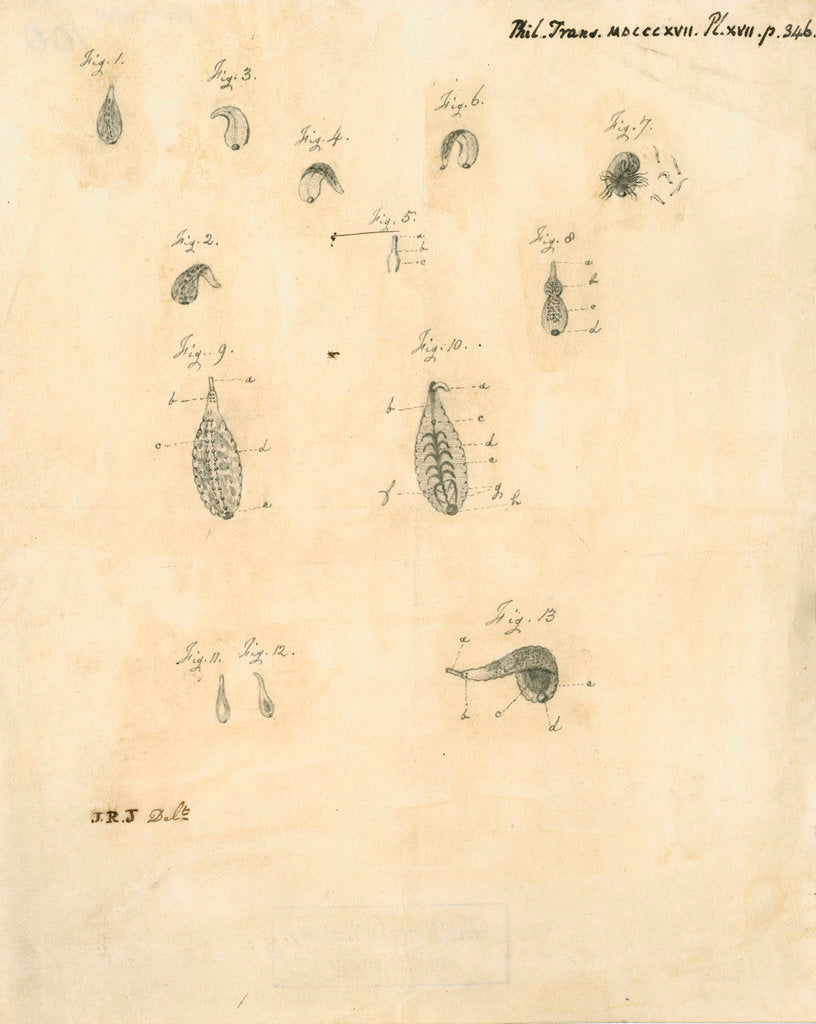 Phil. Trans. MDCCCXVII. Pl. XVII. p. 346.
Fig. 1.
Fig. 3.
Fig. 4.
Fig. 6.
Fig. 7.
Fig. 2.
Fig. 5.
a
b
c
Fig. 8
a
b
c
d
Fig. 9.
a
b
c
d
e
Fig. 10.
a
b
c
d
e
f
g
h
Fig. 11.
Fig. 12.
Fig. 13
a
b
c
d
e
J.R.J Delt